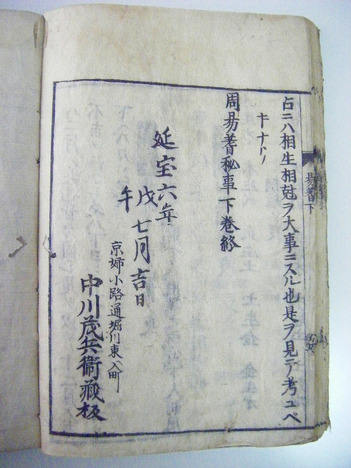 占ニハ相生相尅ヲ大事ニスル也是ヲ見テ考ユベ
周易蓍秘事下巻終
延宝六年
戊
午
七月吉日
京姉小路通堀川東入町
中川茂兵衛蔵板
易蓍下